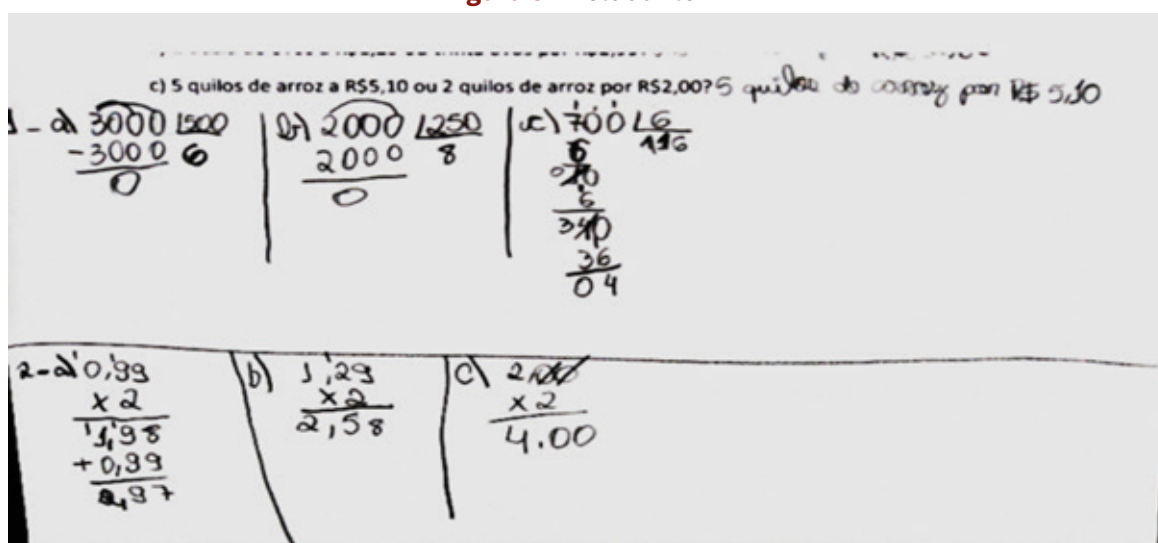 c) 5 quilos de arroz a R$5,10 ou 2 quilos de arroz por R$2,00? 5 quilos de arroz por R$ 5,10
1 - a) 3000 500
- 3000 6
0
b) 2000 250
2000 8
0
c) 700 6
6 116
6
36
04
2 - a) 0,99
x 2
1,98
+ 0,99
2,97
b) 1,29
x 2
2,58
c) 2,00
x 2
4.00